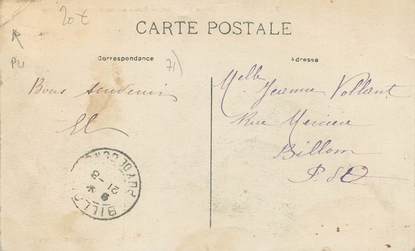 20€
PLI
71)
CARTE POSTALE
Correspondance
Adresse
Bons souvenirs
Melle Jeanne Vollant
Rue Mercière
Billom
P. de D
PUY-DE-DOME
21 - 8
BILLOM